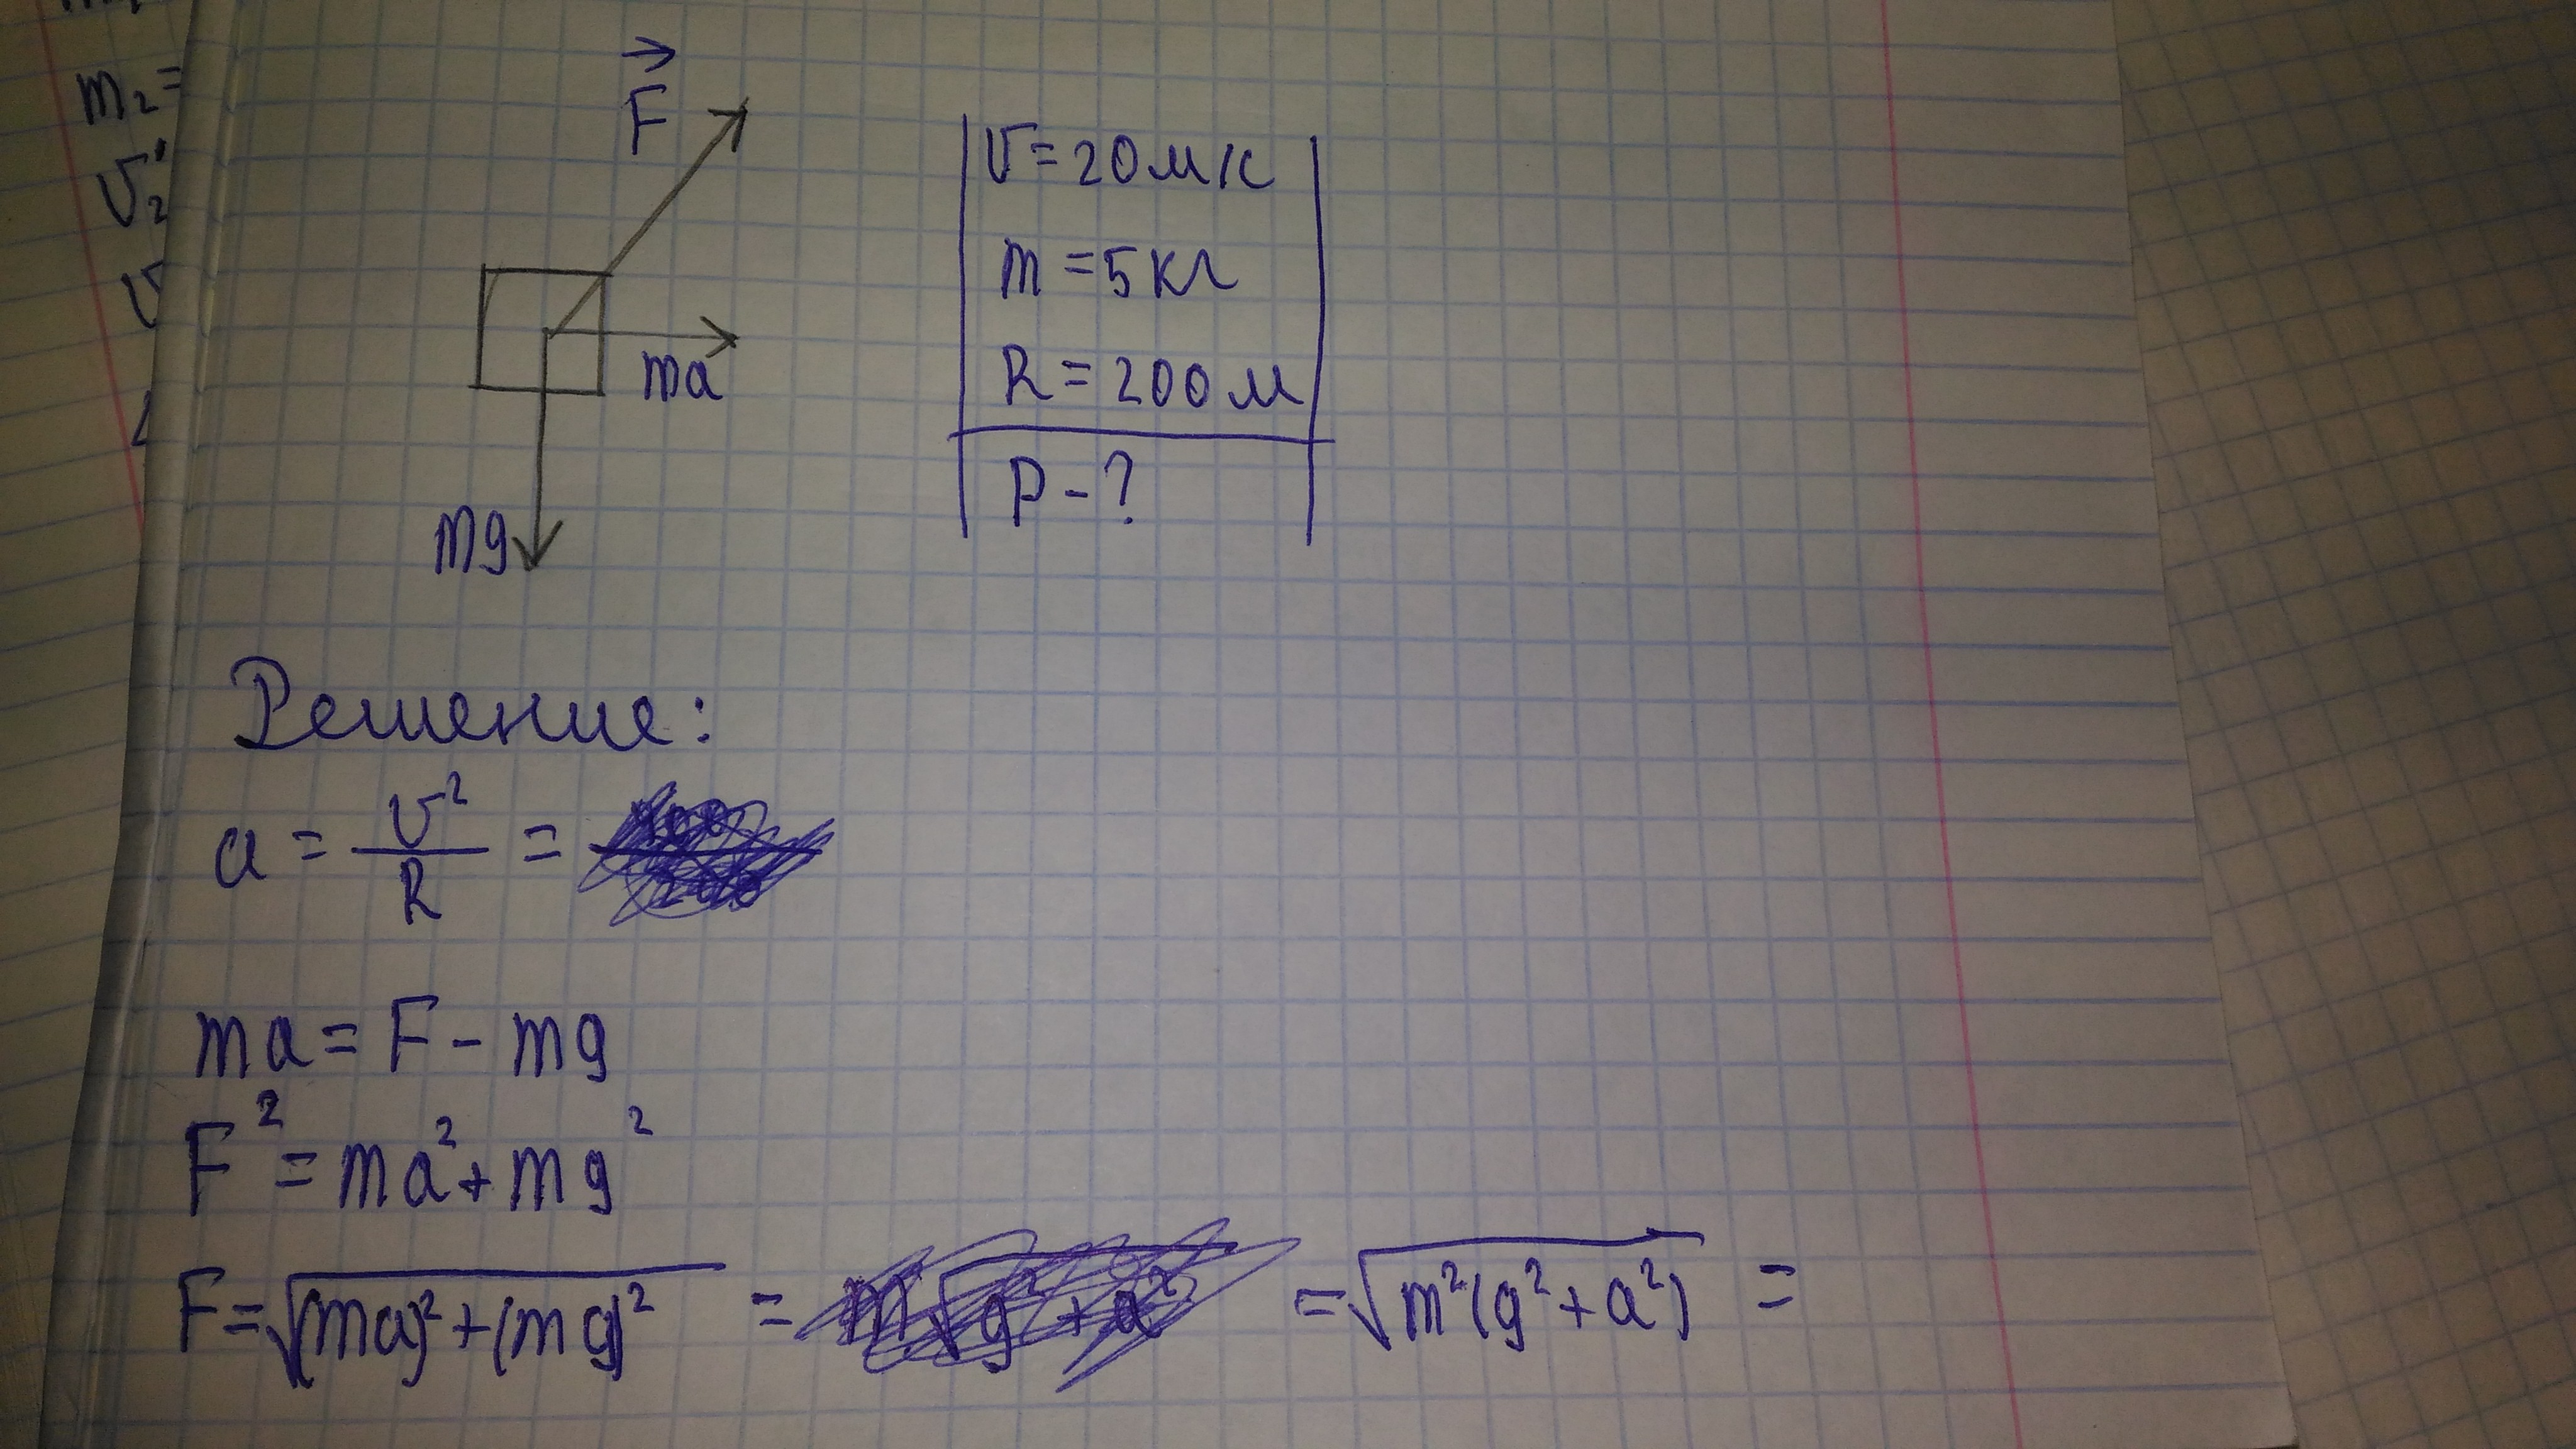 m₂=
υ₂'
υ
F
υ=20м/с
m=5кг
R=200м
P-?
ma
mg
Решение:
a = υ²/R =
ma = F - mg
F² = ma² + mg²
F=√(ma)²+(mg)² = =√m²(g²+a²) =